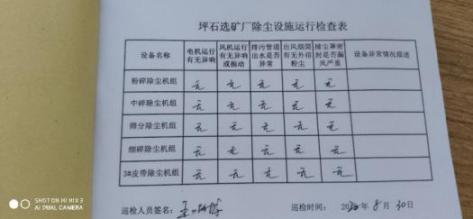 坪石选矿厂除尘设施运行检查表
设备名称 电机运行有无异响 风机运行有无异响或振动 排污管道出水是否异常 出风烟筒有无外排粉尘 除尘罩密封是否漏风严重 设备异常情况描述
粉碎除尘机组 无 无 无 无 无
中碎除尘机组 无 无 无 无 无
筛分除尘机组 无 无 无 无 无
细碎除尘机组 无 无 无 无 无
3#皮带除尘机组 无 无 无 无 无
巡检人员签名: 巡检时间: 年 8 月 30 日
SHOT ON MI MIX 3
AI DUAL CAMERA